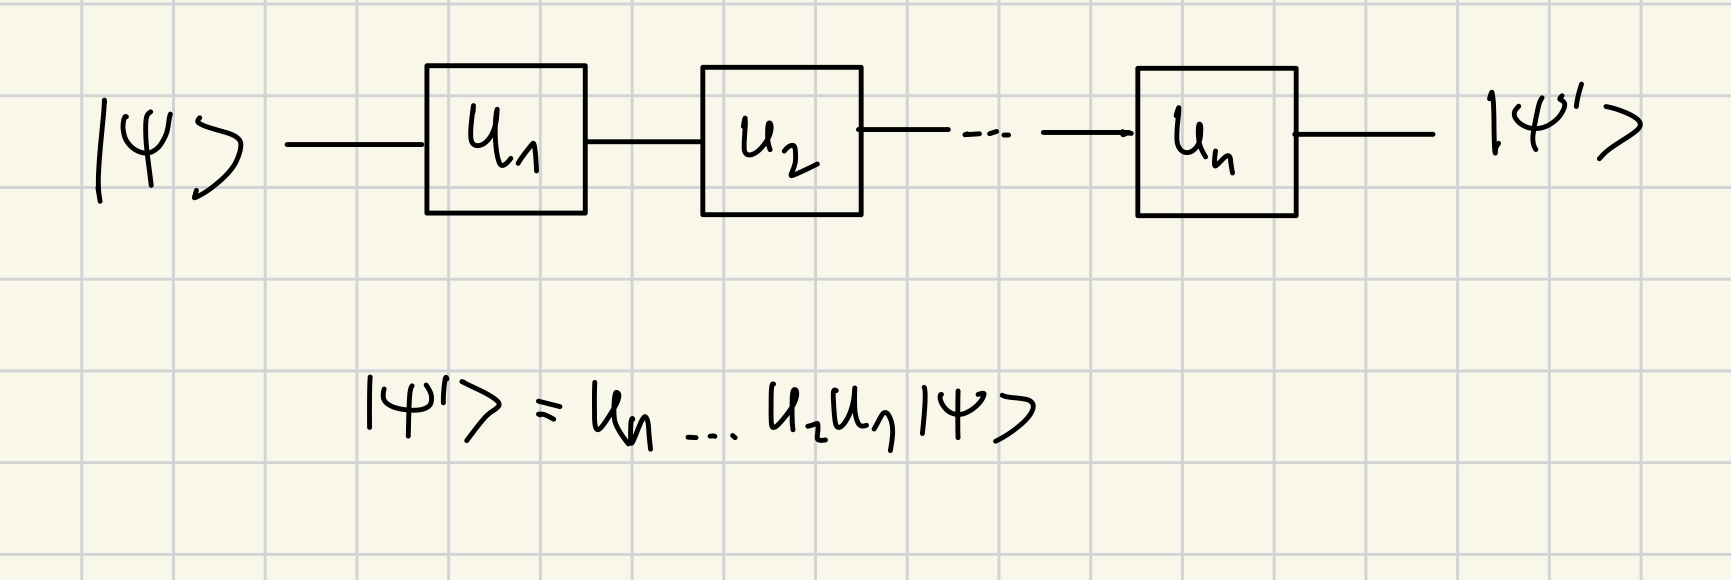 |ψ⟩ — U₁ — U₂ — ... — Uₙ — |ψ'⟩
|ψ'⟩ = Uₙ ... U₂U₁|ψ⟩